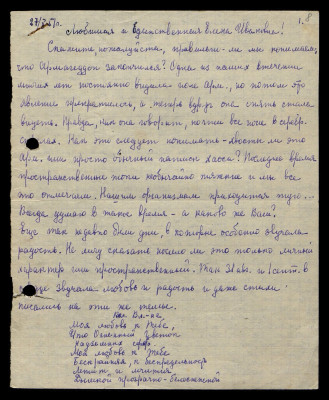 27/IX-57г.
1.8
Любимая и Единственная Елена Ивановна!
Скажите, пожалуйста, правильно-ли мы понимаем,
что Армагеддон закончился? Одна из наших
многия лет постоянно видала поле Арм., но потом это
явление прекратилось, а теперь вдруг она опять стала
видеть. Правда, как она говорит, почти все поле в серебр.
Как это следует понимать - хвосты ли это
Арм. или просто обычный натиск хаоса? Последнее время
пространственные токи необычайно тяжкие и мы все
это отмечаем. Нашим организмам приходится туго...
Всегда думаю в такое время - а каково же Вам?
Еще так недавно были дни, в которые особенно звучала
радость. Не могу сказать носило ли это только личный
характер или пространственный? 31 авг. и 1 сент. в
звучала любовь и радость и даже стихи
писались на эти же темы.
Моя любовь к Тебе,
Что Огненный Цветок,
Моя любовь к Тебе
Бескрайняя, к беспредельность
Летит и мчится
Дымкой прозрачно-белоснежной